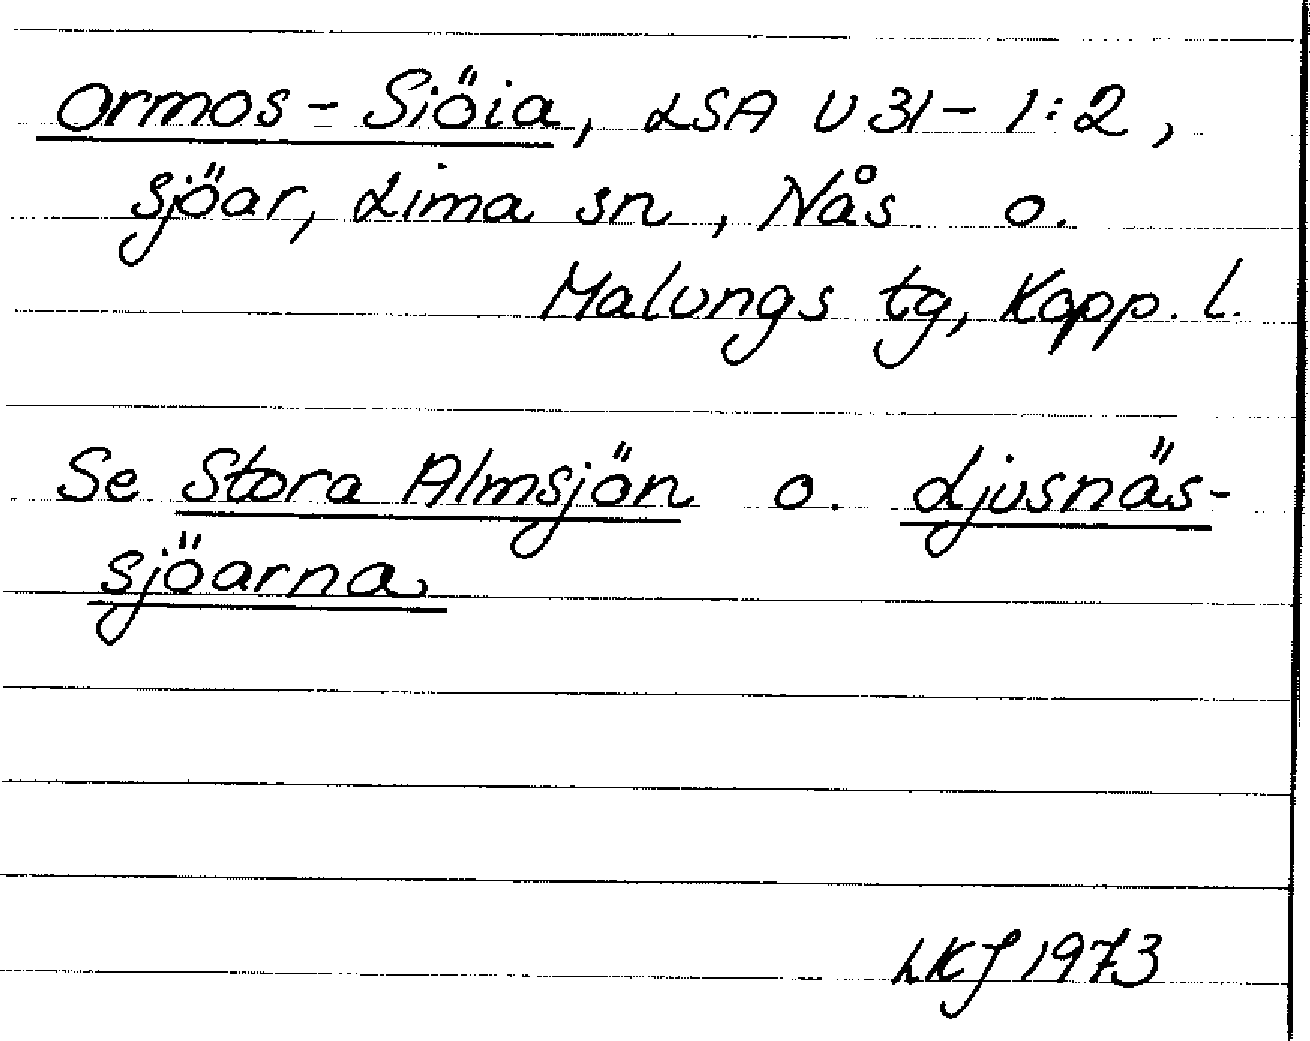 Ormos-Siöia, LSA U31-1:2,
sjöar, Lima sn, Nås o.
Malungs tg, Kopp. l.
Se Stora Almsjön o. Ljusnäs-
sjöarna
LKJ 1973